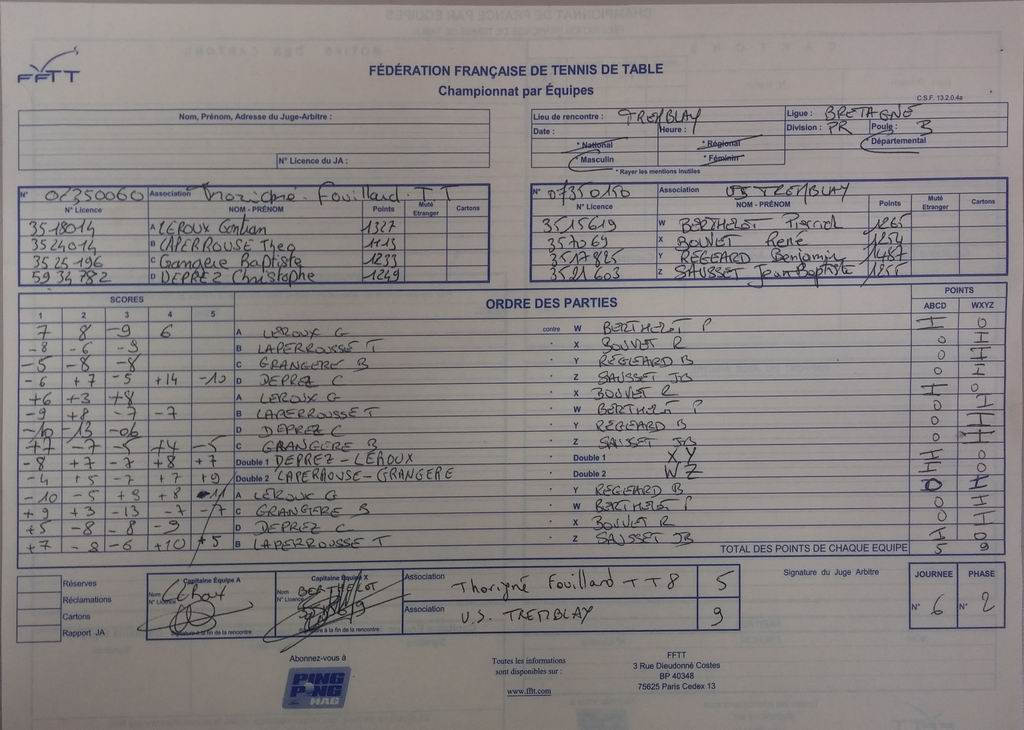 FFTT
FÉDÉRATION FRANÇAISE DE TENNIS DE TABLE
Championnat par Équipes
C.S.F. 13.2.0.4a
Nom, Prénom, Adresse du Juge-Arbitre :
N° Licence du JA :
Lieu de rencontre : TREMBLAY Ligue : BRETAGNE
Date : Heure : Division : PR Poule : B
* National * Régional * Départemental
* Masculin * Féminin
* Rayer les mentions inutiles
N° 07350060 Association Thorigné-Fouillard TT
N° Licence NOM - PRÉNOM Points Muté Etranger Cartons
3518014 A LEROUX Gontian 1327
3524014 B LAPERROUSE Theo 1113
3525196 C Grangère Baptiste 1233
5934782 D DEPREZ Christophe 1249
N° 07350150 Association US TREMBLAY
N° Licence NOM - PRÉNOM Points Muté Etranger Cartons
3515619 W BERTHELOT Pierrick 1265
357069 X BOUVET René 1254
3517825 Y REGEARD Benjamin 1487
3521603 Z SAUSSET Jean Baptiste 1255
SCORES ORDRE DES PARTIES POINTS
1 2 3 4 5 ABCD WXYZ
7 8 -9 6 A LEROUX G contre W BERTHELOT P I 0
-8 -6 -9 B LAPERROUSSE T - X BOUVET R 0 I
-5 -8 -8 C GRANGERE B - Y REGEARD B 0 I
-6 +7 -5 +14 -10 D DEPREZ C - Z SAUSSET JB 0 I
+6 +3 +8 A LEROUX G - X BOUVET R I 0
-9 +8 -7 -7 B LAPERROUSSE T - W BERTHELOT P 0 I
-10 -13 -06 D DEPREZ C - Y REGEARD B 0 I
+7 -7 -5 +4 -5 C GRANGERE B - Z SAUSSET JB 0 I
-8 +7 -7 +8 +7 Double 1 DEPREZ - LEROUX - Double 1 X Y I 0
-4 +5 -7 +7 +9 Double 2 LAPEROUSE - GRANGERE - Double 2 W Z I 0
-10 -5 +9 +8 -11 A LEROUX G - Y REGEARD B 0 I
+9 +3 -13 -7 -7 C GRANGERE B - W BERTHELOT P 0 I
+5 -8 -8 -9 D DEPREZ C - X BOUVET R 0 I
+7 -8 -6 +10 +5 B LAPERROUSSE T - Z SAUSSET JB I 0
TOTAL DES POINTS DE CHAQUE EQUIPE 5 9
Réserves
Réclamations
Cartons
Rapport JA
Capitaine Équipe A
Nom
N° Licence
Signature à la fin de la rencontre
Capitaine Équipe X
Nom BERTHELOT
N° Licence 3515619
Signature à la fin de la rencontre
Association Thorigné Fouillard TT 8 5
Association U.S. TREMBLAY 9
Signature du Juge Arbitre
JOURNEE PHASE
N° 6 N° 2
Abonnez-vous à
PING PONG MAG
Toutes les informations
sont disponibles sur :
www.fftt.com
FFTT
3 Rue Dieudonné Costes
BP 40348
75625 Paris Cedex 13